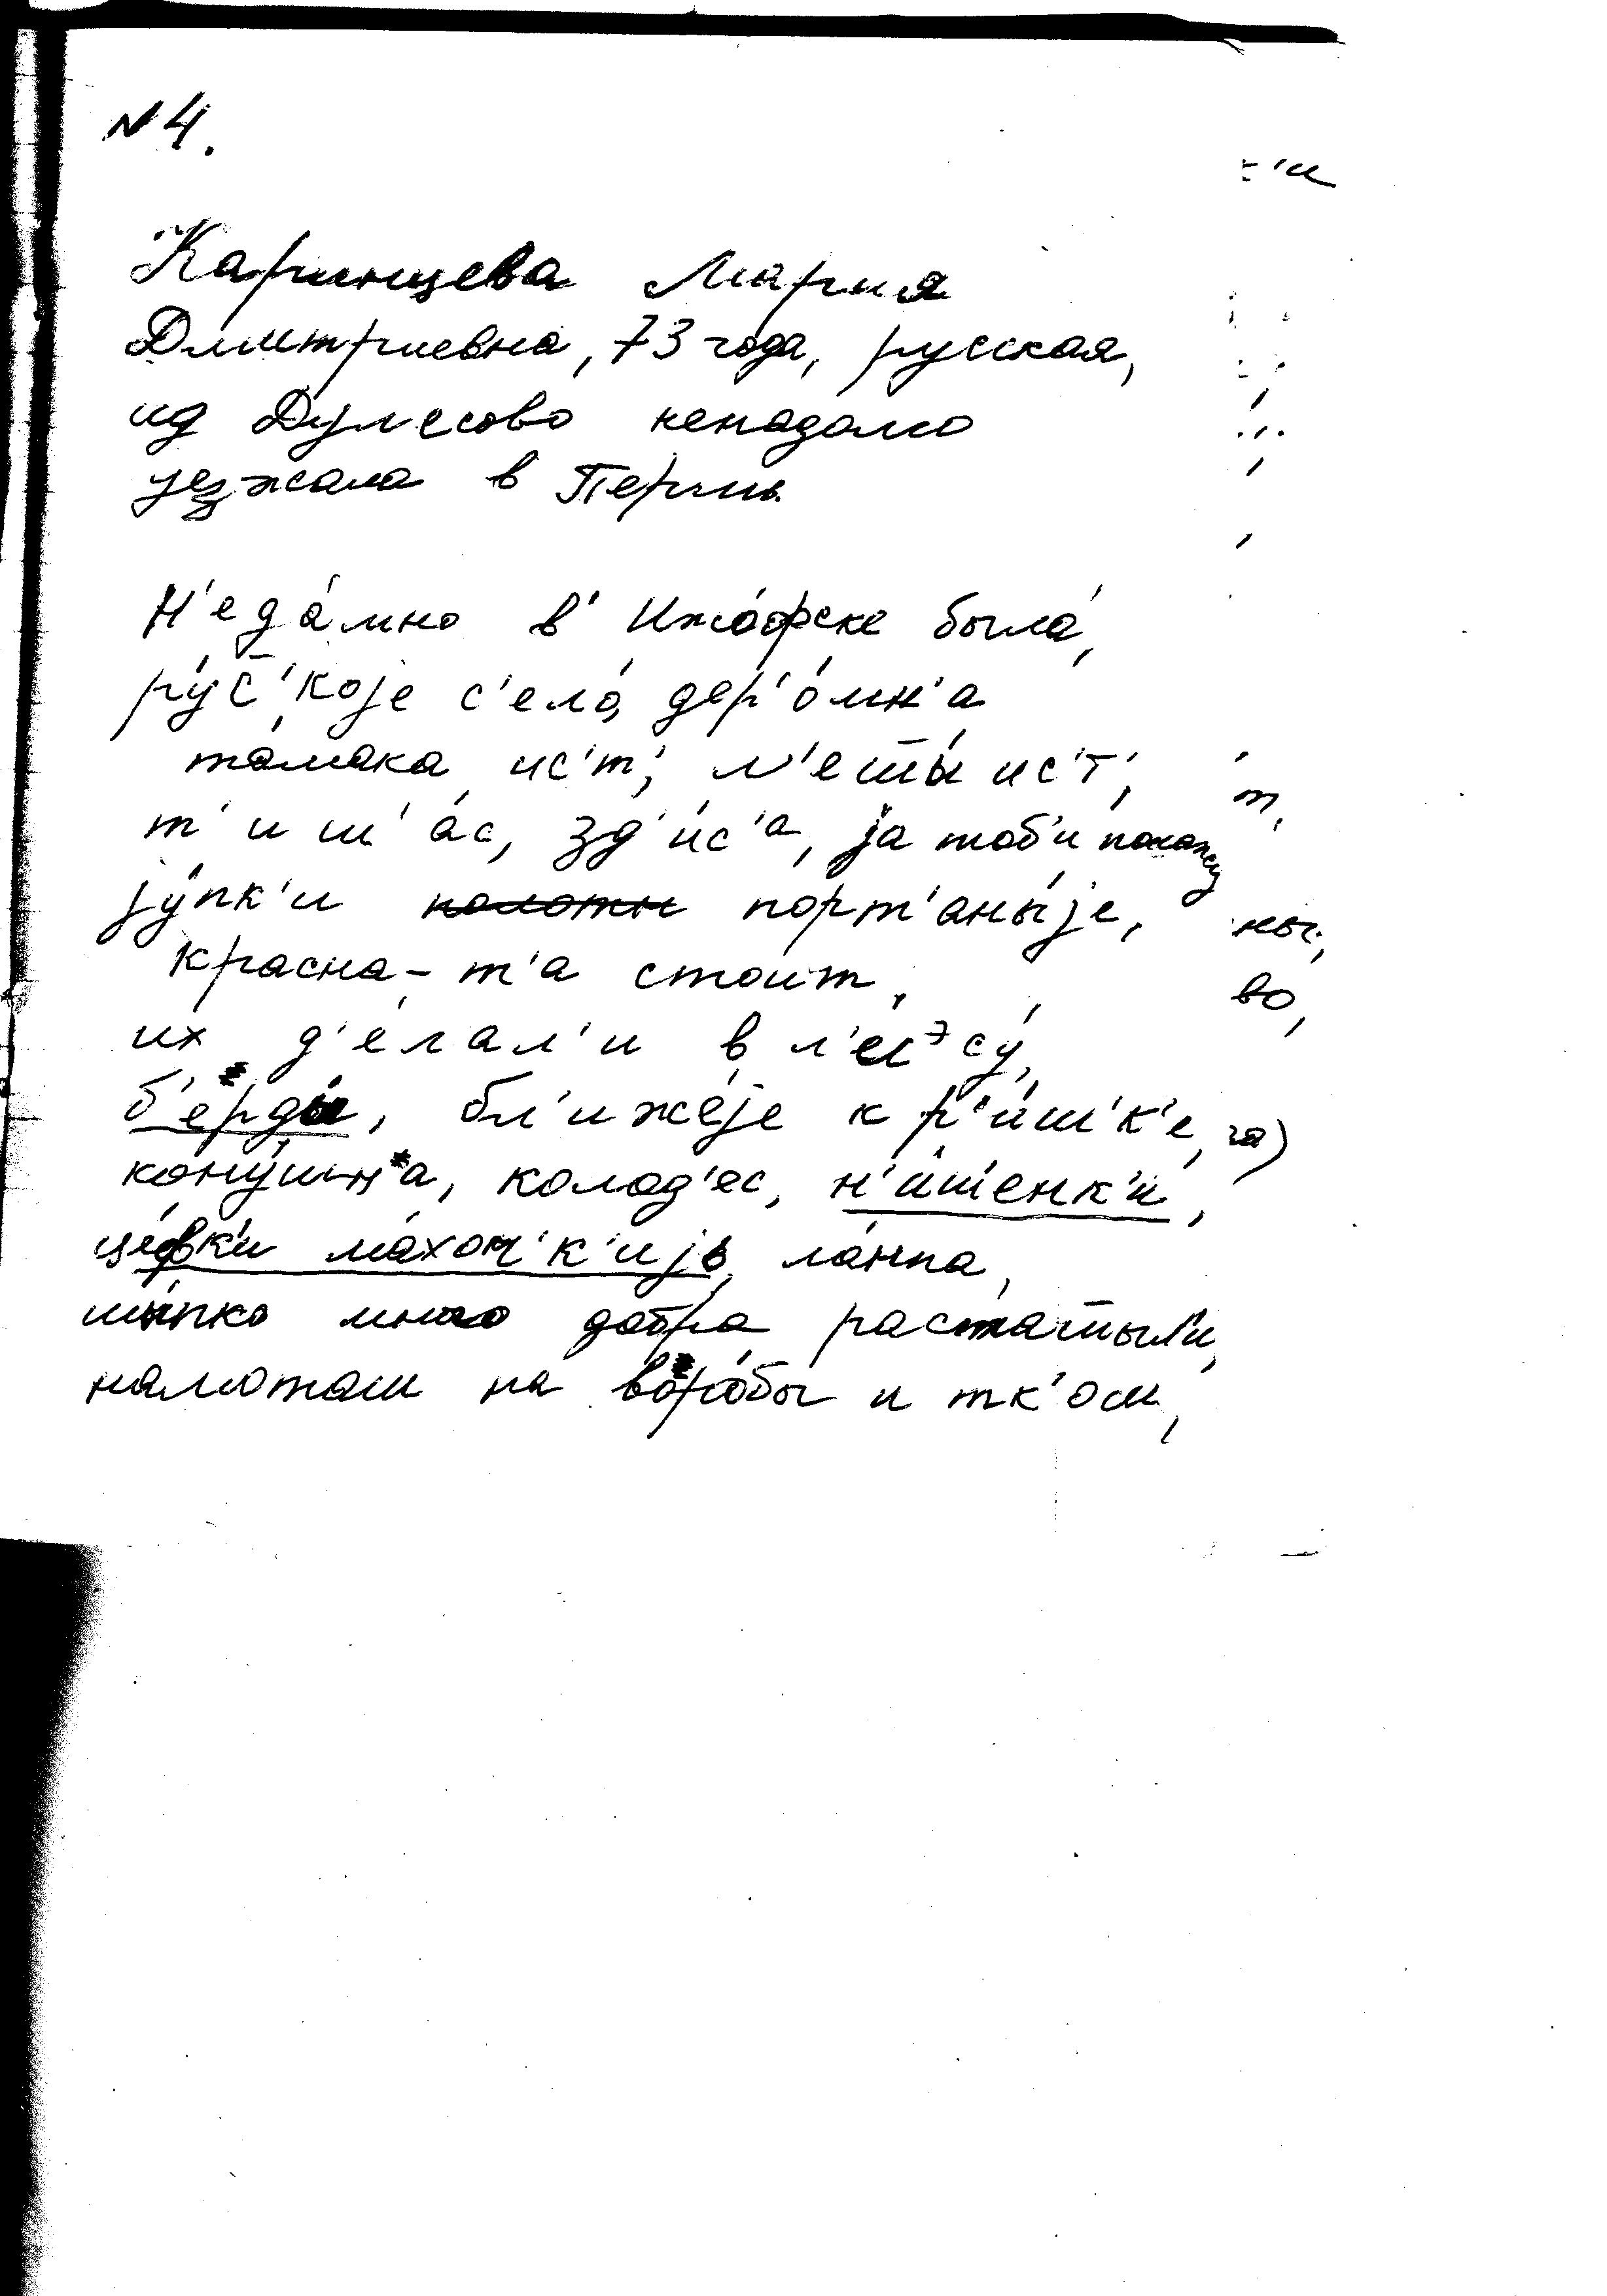 N 4.
Каринцева Мария
Дмитриевна, 73 года, русская,
из Дулесово ненадолго
уезжала в Пермь
Н'еда́мно в' Ижо́фске была́,
ру́с̄'које с'ело́, дер'о́мн'а
та́мака ис'т', м'ешты́ ис'т',
т'иш'а́с, зд'и́с'а, ја тоб'и́ покажу
јупк'и ~~полотн~~ порт'аны́је,
красна-т'а стоит,
их д'е́лал'и в л'еи^эсу́,
б'е́рды, бл'иже́је к р'и́ш'к'е,
кону́шн'а, колод'ес, н'и́т'енк'и,
це́фк'и ма́хон'к'ијь, ла́нпа,
шы́пко много добра растащыл'и,
намоташ на воро́бы и тк'ош,